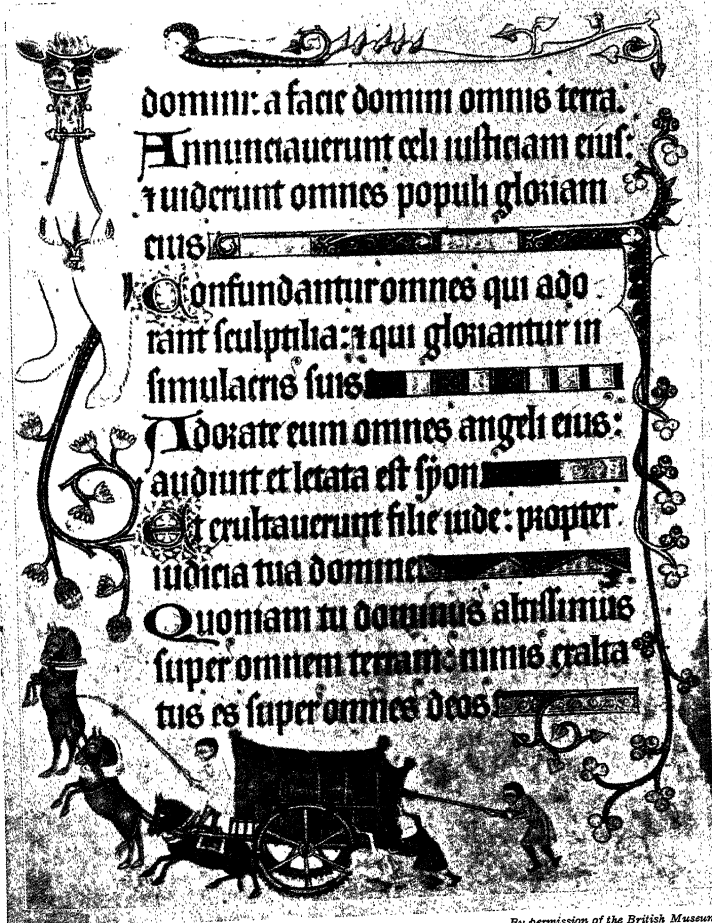 domini: a facie domini omnis terra.
Annunciauerunt celi iusticiam eius:
⁊ uiderunt omnes populi gloriam
eius
Confundantur omnes qui ado
rant sculptilia: ⁊ qui gloriantur in
simulacris suis.
Adorate eum omnes angeli eius:
audiuit et letata est syon
Et exultauerunt filie iude: propter
iudicia tua domine
Quoniam tu dominus altissimus
super omnem terram: nimis exalta
tus es super omnes deos.
By permission of the British Museum